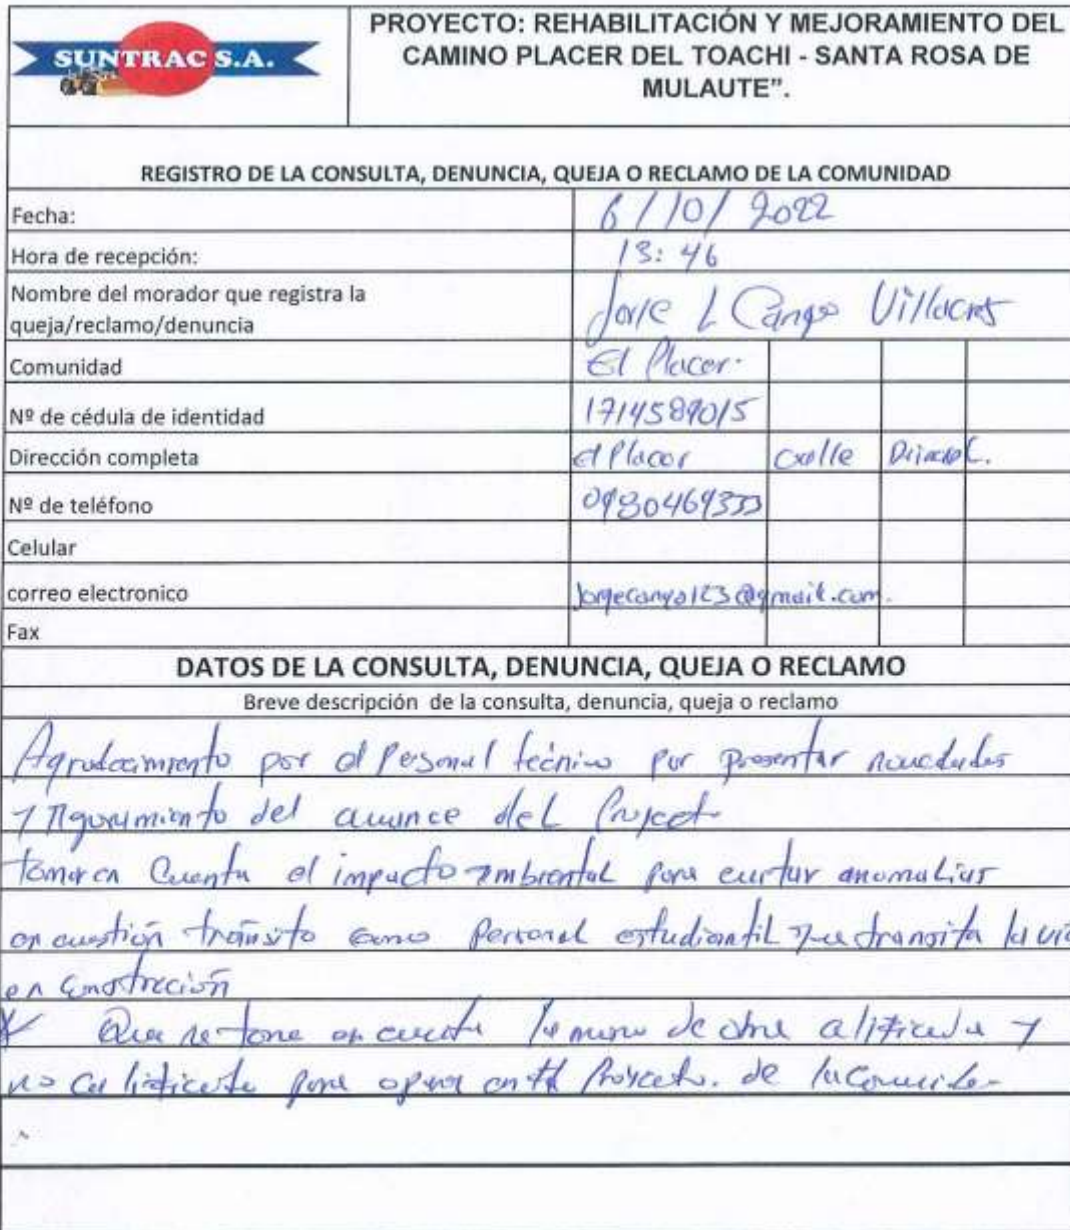 SUNTRAC S.A.
PROYECTO: REHABILITACIÓN Y MEJORAMIENTO DEL
CAMINO PLACER DEL TOACHI - SANTA ROSA DE
MULAUTE”.
REGISTRO DE LA CONSULTA, DENUNCIA, QUEJA O RECLAMO DE LA COMUNIDAD
Fecha: 6/10/2022
Hora de recepción: 13:46
Nombre del morador que registra la
queja/reclamo/denuncia Jorge L Cango Villacres
Comunidad El Placer.
Nº de cédula de identidad
Dirección completa el Placer calle
Nº de teléfono
Celular
correo electronico
Fax
DATOS DE LA CONSULTA, DENUNCIA, QUEJA O RECLAMO
Breve descripción de la consulta, denuncia, queja o reclamo
Agradecimiento por el Personal técnico por presentar novedades
y del avance del
tomar en Cuenta el impacto ambiental para evitar anomalias
en cuestión tránsito como personal estudiantil que transita la vía
en Construcción
Que se tome en cuenta la mano de obra calificada y
no calificada para en el Proyecto. de la